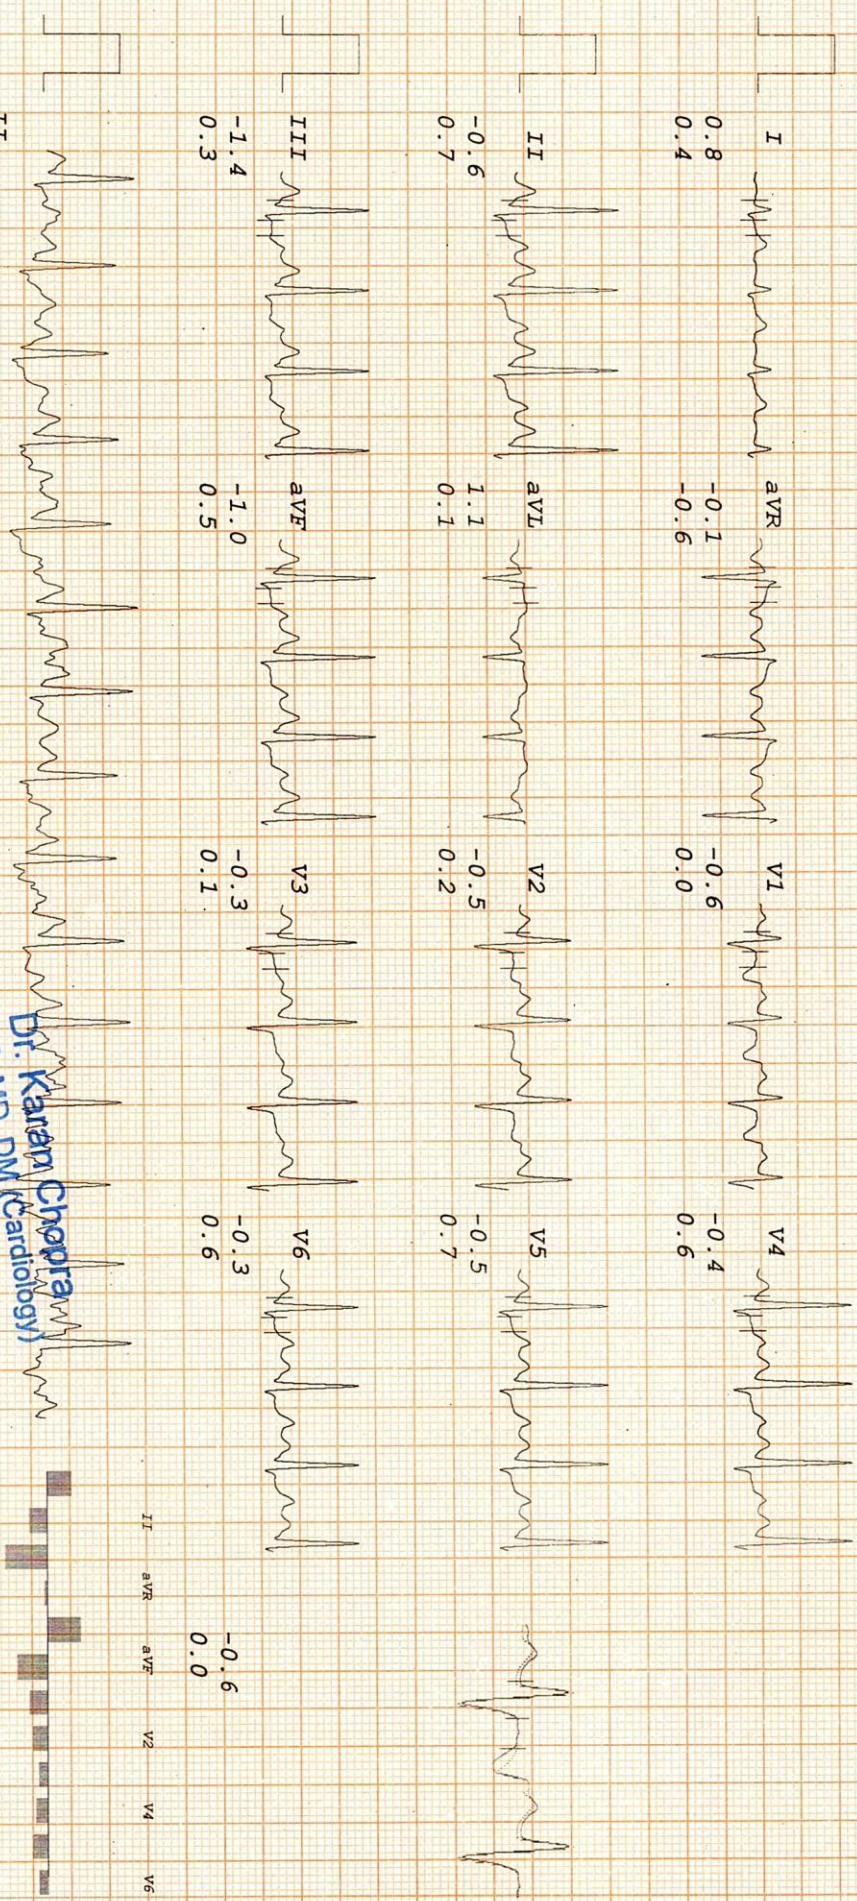 I
0.8
0.4
aVR
-0.1
-0.6
V1
-0.6
0.0
V4
-0.4
0.6
II
-0.6
0.7
aVL
1.1
0.1
V2
-0.5
0.2
V5
-0.5
0.7
III
-1.4
0.3
aVF
-1.0
0.5
V3
-0.3
0.1
V6
-0.3
0.6
-0.6
0.0
II
II aVR aVF V2 V4 V6
Dr. Karan Chopra
MD, DM (Cardiology)